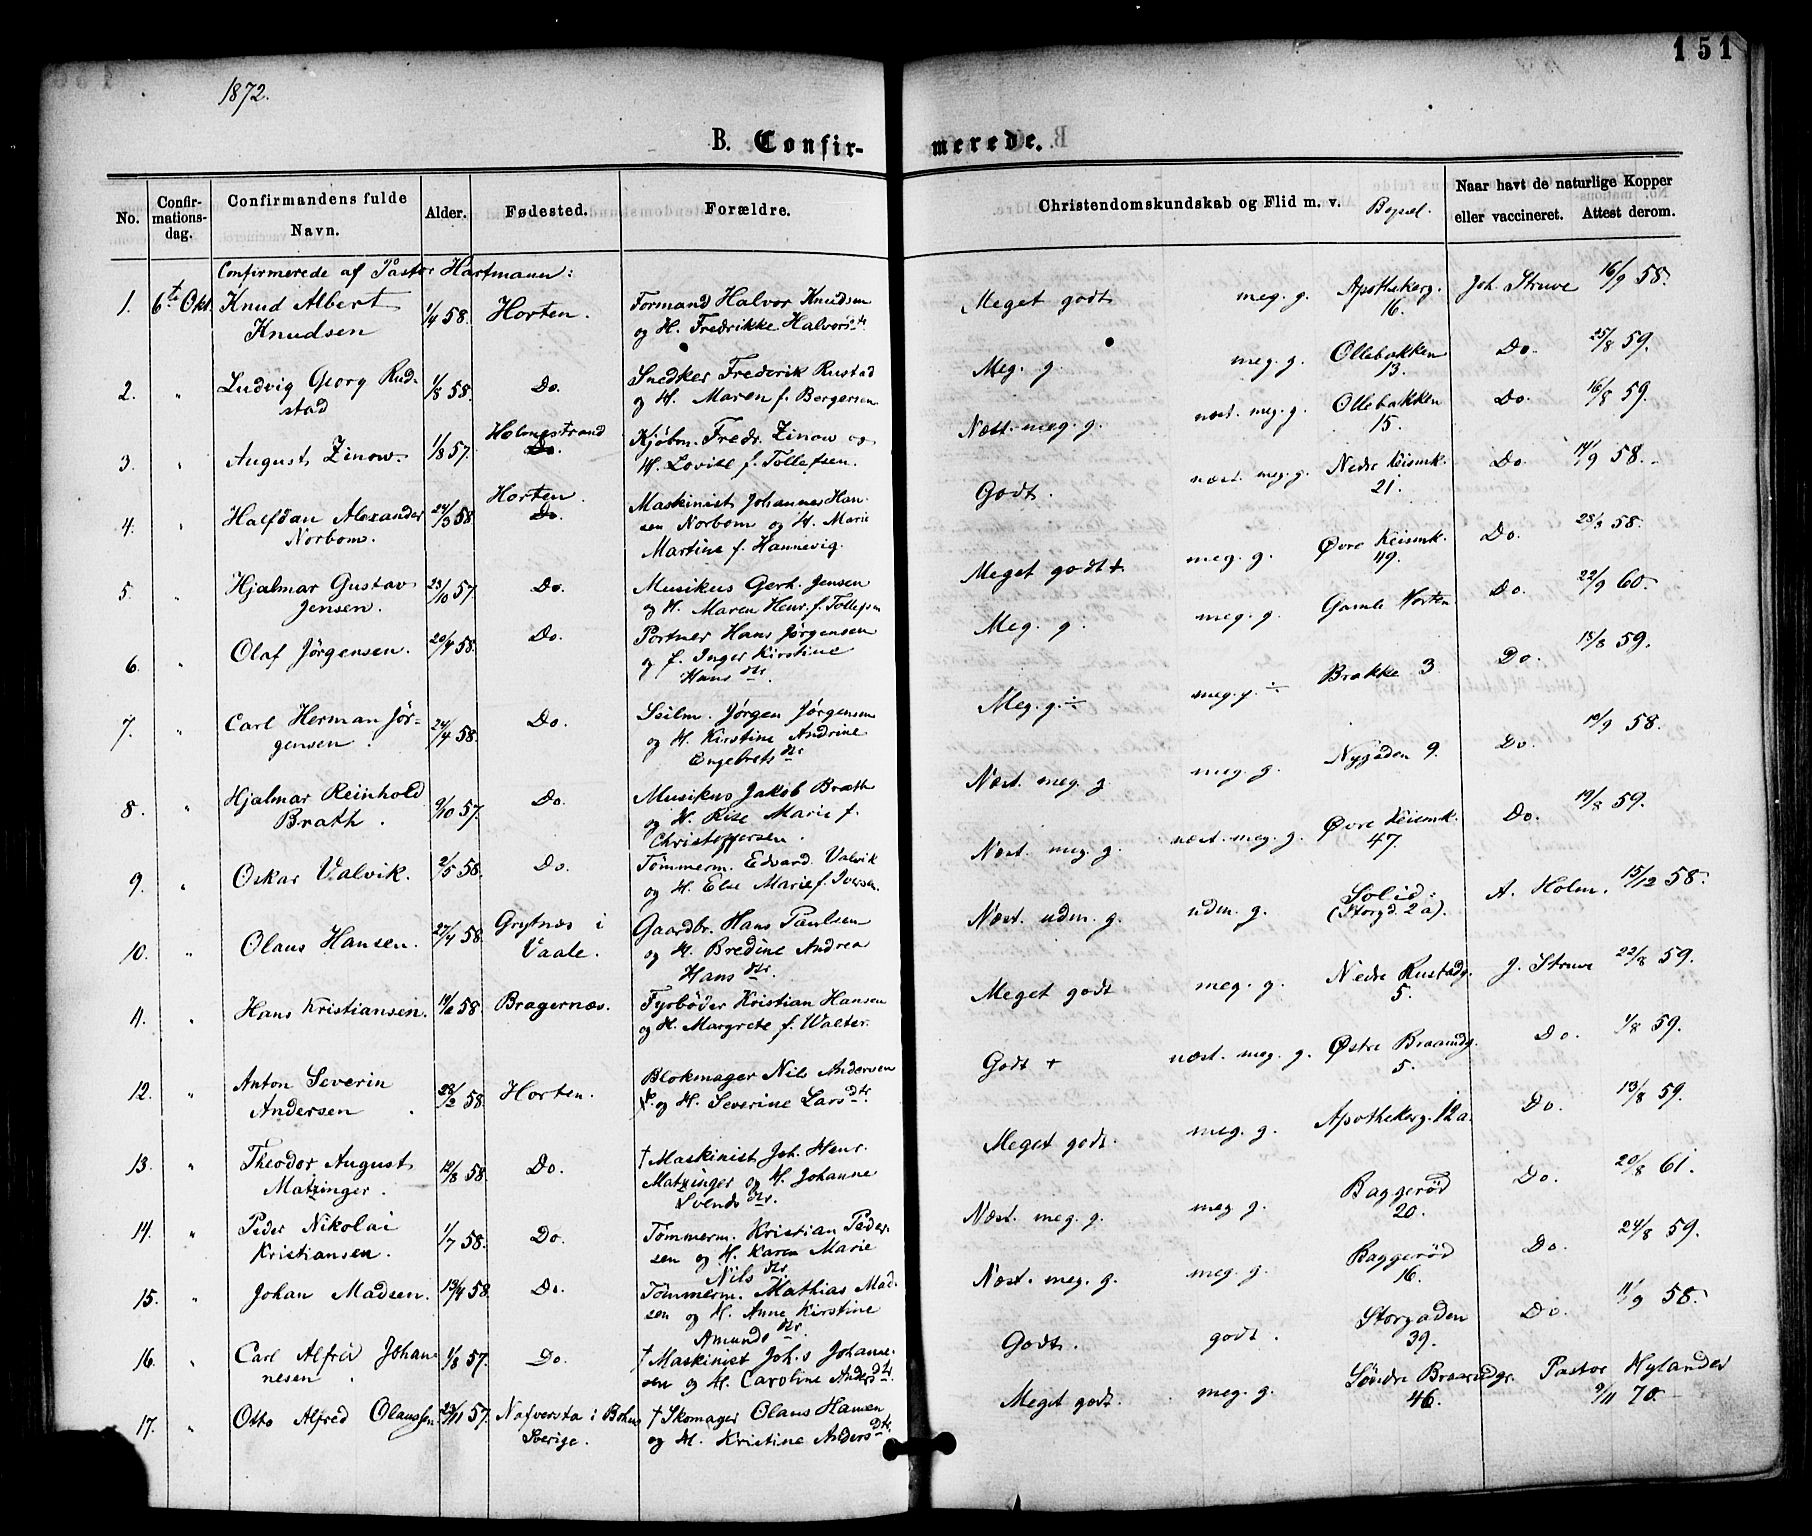 151
1872.
B. Confir- merede.
No.
Confir-
mations-
dag.
Confirmandens fulde
Navn.
Alder.
Fødested.
Forældre.
Christendomskundskab og Flid m. v.
Bopæl.
Naar havt de naturlige Kopper
eller vaccineret. Attest derom.
Confirmerede af Pastor Hartmann:
1. 6te Okt. Knud Albert 1/4 58. Horten. Formand Halvor Knudsen Meget godt meg. g. Apothekerg. Joh. Struve 16/9 58.
Knudsen og H. Fredrikke Halvorsdtr 16.
2. " Ludvig Georg Rud- 1/8 58. Do. Snedker Frederik Rustad Meg. g. meg. g. Ollebakken Do. 25/8 59.
stad og H. Maren f. Bergersen 13.
3. " August Zinow. 1/8 57. Holmestrand Kjøbm. Fredr. Zinow og Næst. meg. g. næst. meg. g. Ollebakken Do. 16/8 59.
Do. H. Lovise f. Tollefsen. 15.
4. " Halfdan Alexander 24/3 58. Horten. Maskinist Johannes Han- Godt. næst meg. g. Nedre Keismk. Do. 14/9 58.
Norbom. Do. sen Norbom og H. Marie 21.
Martine f. Hannevig.
5. " Hjalmar Gustav 23/10 57. Do. Musikus Gerh. Jensen Meget godt + meg. g. Øvre Keismk. Do. 28/3 58.
Jensen. og H. Maren Henr. f. Tollefsen 49.
6. " Olaf Jörgensen. 20/4 58. Do. Portner Hans Jörgensen Meg. g. meg. g. Gamle Horten Do. 22/9 60.
og f. Inger Kirstine
Hansdtr.
7. " Carl Herman Jör- 24/4 58. Do. Seilm. Jörgen Jörgensen Meg. g. ÷ meg. g. ÷ Brakke 3 Do. 18/8 59.
gensen. og H. Kirstine Andrine
Engebretsdtr
8. " Hjalmar Reinhold 9/10 57. Do. Musikus Jakob Brath Næst. meg. g. meg. g. Nygaden 9. Do. 19/9 58.
Brath. og H. Rise Marie f.
Christoffersen.
9. " Oskar Valvik. 2/5 58. Do. Tömmerm. Edvard Valvik Næst. meg. g. næst. meg. g. Øvre Keismk. Do. 19/8 59.
og H. Else Marie f. Iversen. 47.
10. " Olaus Hansen. 27/4 58. Grytnæs i Gaardbr. Hans Paulsen Næst. udm. g. udm. g. Solid: A. Holm. 15/12 58.
Vaale. og H. Bredine Andrea (Storgd. 2 a).
Hansdtr.
11. " Hans Kristiansen. 58. Bragernæs. Fyrböder Kristian Hansen Meget godt meg. g. Nedre Rustadg. J. Struve 22/8 59.
og H. Margrete f. Walter. 5.
12. " Anton Severin 28/2 58. Horten. Blokmager Nils Andersen Godt + næst. meg. g. Østre Braandg. Do. 1/8 59.
Andersen og H. Severine Larsdtr. 5.
13. " Theodor August 12/8 58. Do. † Maskinist Joh. Henr. Meget godt. meg. g. Apothekerg. 12a. Do. 13/8 59.
Matzinger. Matzinger og H. Johanne
Svendsdtr.
14. " Peder Nikolai 1/7 58. Do. Tömmerm. Kristian Peder- Næst. meg. g. meg. g. Baggeröd Do. 20/8 61.
Kristiansen. sen og H. Karen Marie 20.
Nilsdtr.
15. " Johan Madsen. 13/4 58. Do. Tömmerm. Mathias Mad- Næst. meg. g. meg. g. Baggeröd Do. 24/8 59.
sen og H. Anne Kirstine 16.
Amundsdtr.
16. " Carl Alfred Johan- 1/8 57. Do. † Maskinist Joh.s Johanne- Godt. godt. Storgaden Do. 11/9 58.
nesen. sen og H. Caroline Andersdtr. 39.
17. " Otto Alfred Olaussen 23/11 57. Nafversta i Bohus † Skomager Olaus Hansen Meget godt. meg. g. Søndre Braandgr. Pastor Hylander
Sverige. og H. Kristine Andersdtr. 46. 9/11 70.